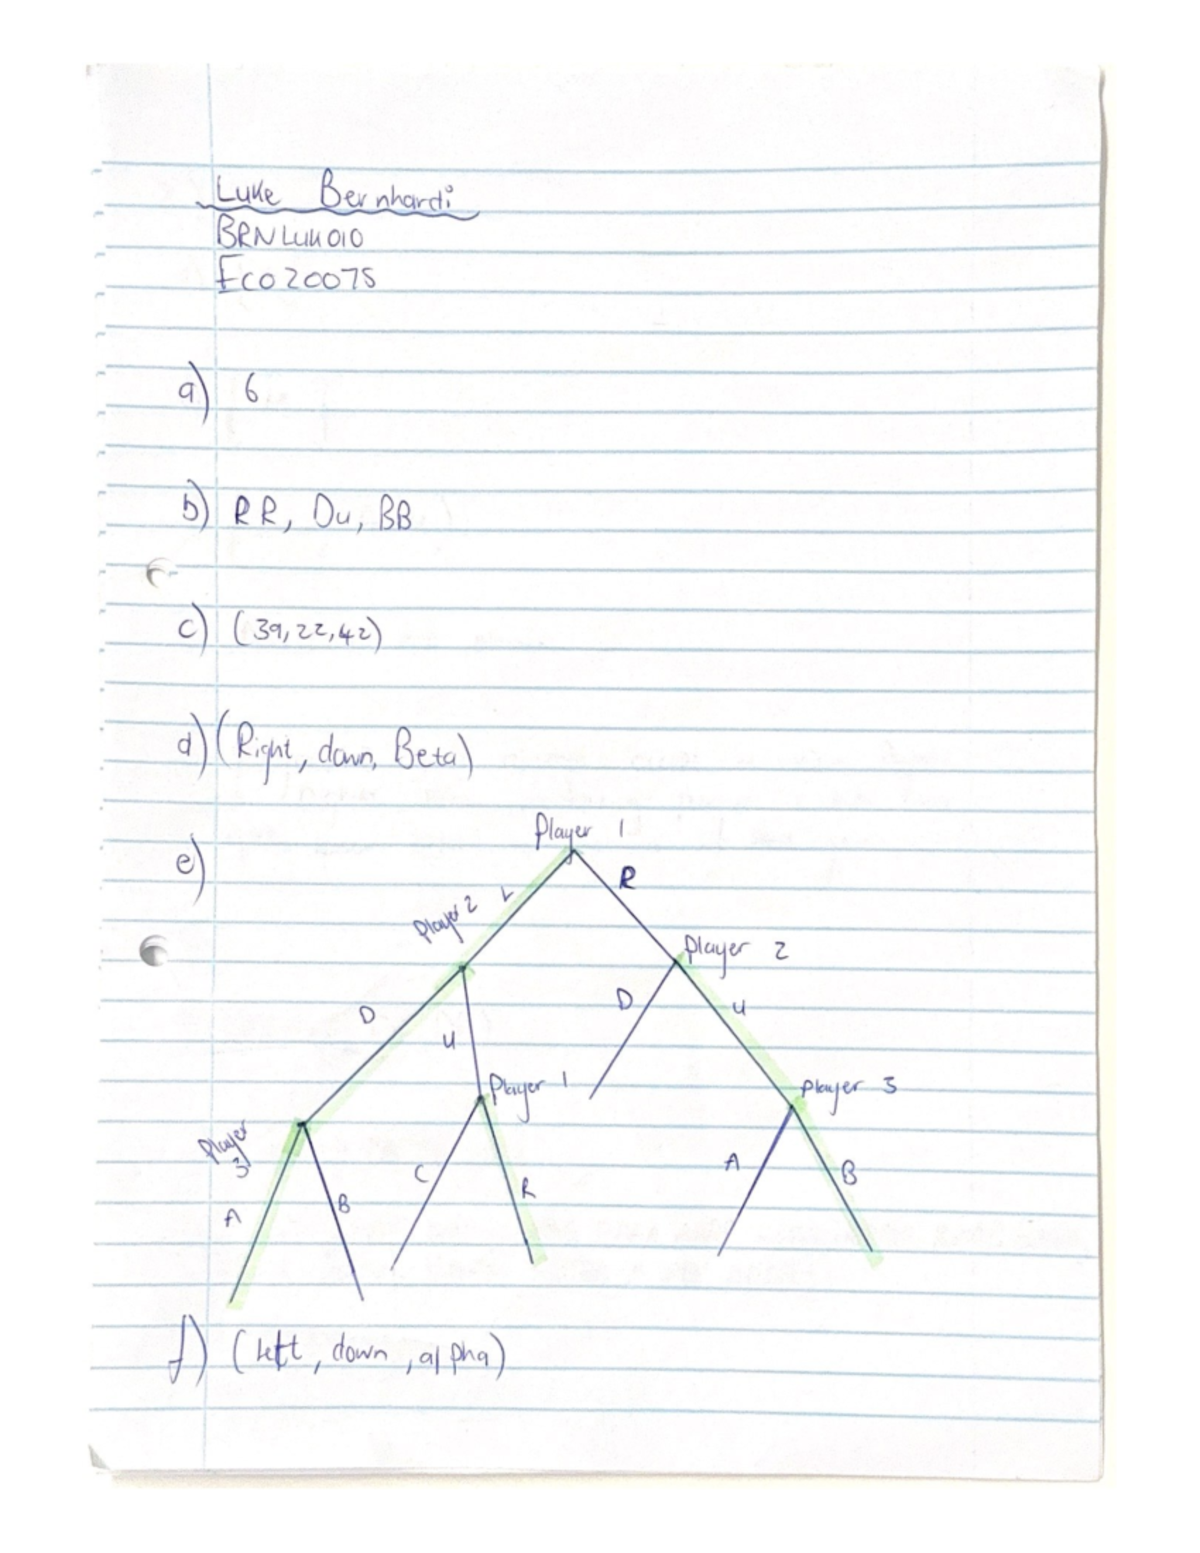 Luke Bernhardi
BRNLUK010
Eco2007S
a) 6
b) RR, Du, BB
c) (39,22,42)
d) (Right, down, Beta)
e)
Player 1
L R
Player 2 Player 2
D U D U
Player 3 Player 1 Player 3
A B C R A B
f) (Left, down, alpha)